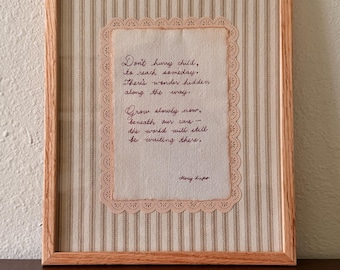 Don't hurry child,
to reach someday.
There's wonder hidden
along the way.
Grow slowly now,
beneath our care —
the world will still
be waiting there.
Mary